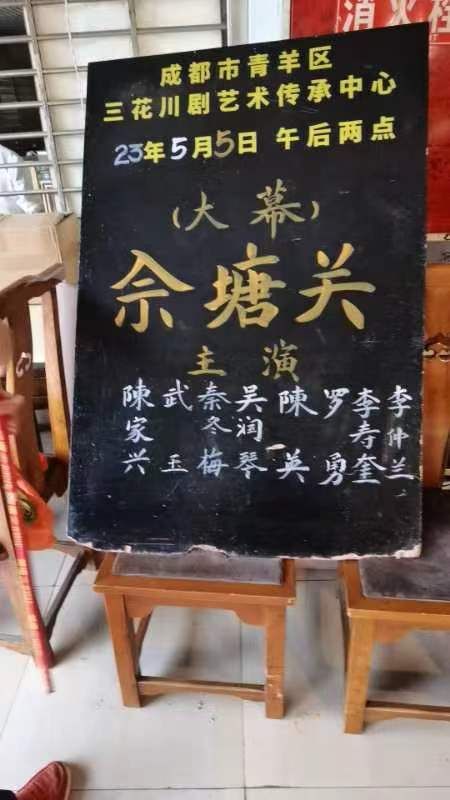 消火栓
成都市青羊区
三花川剧艺术传承中心
23年5月5日 午后两点
（大幕）
佘塘关
主演
陳家兴
武玉
秦冬梅
吴润琴
陳英
罗勇
李寿奎
李仲兰